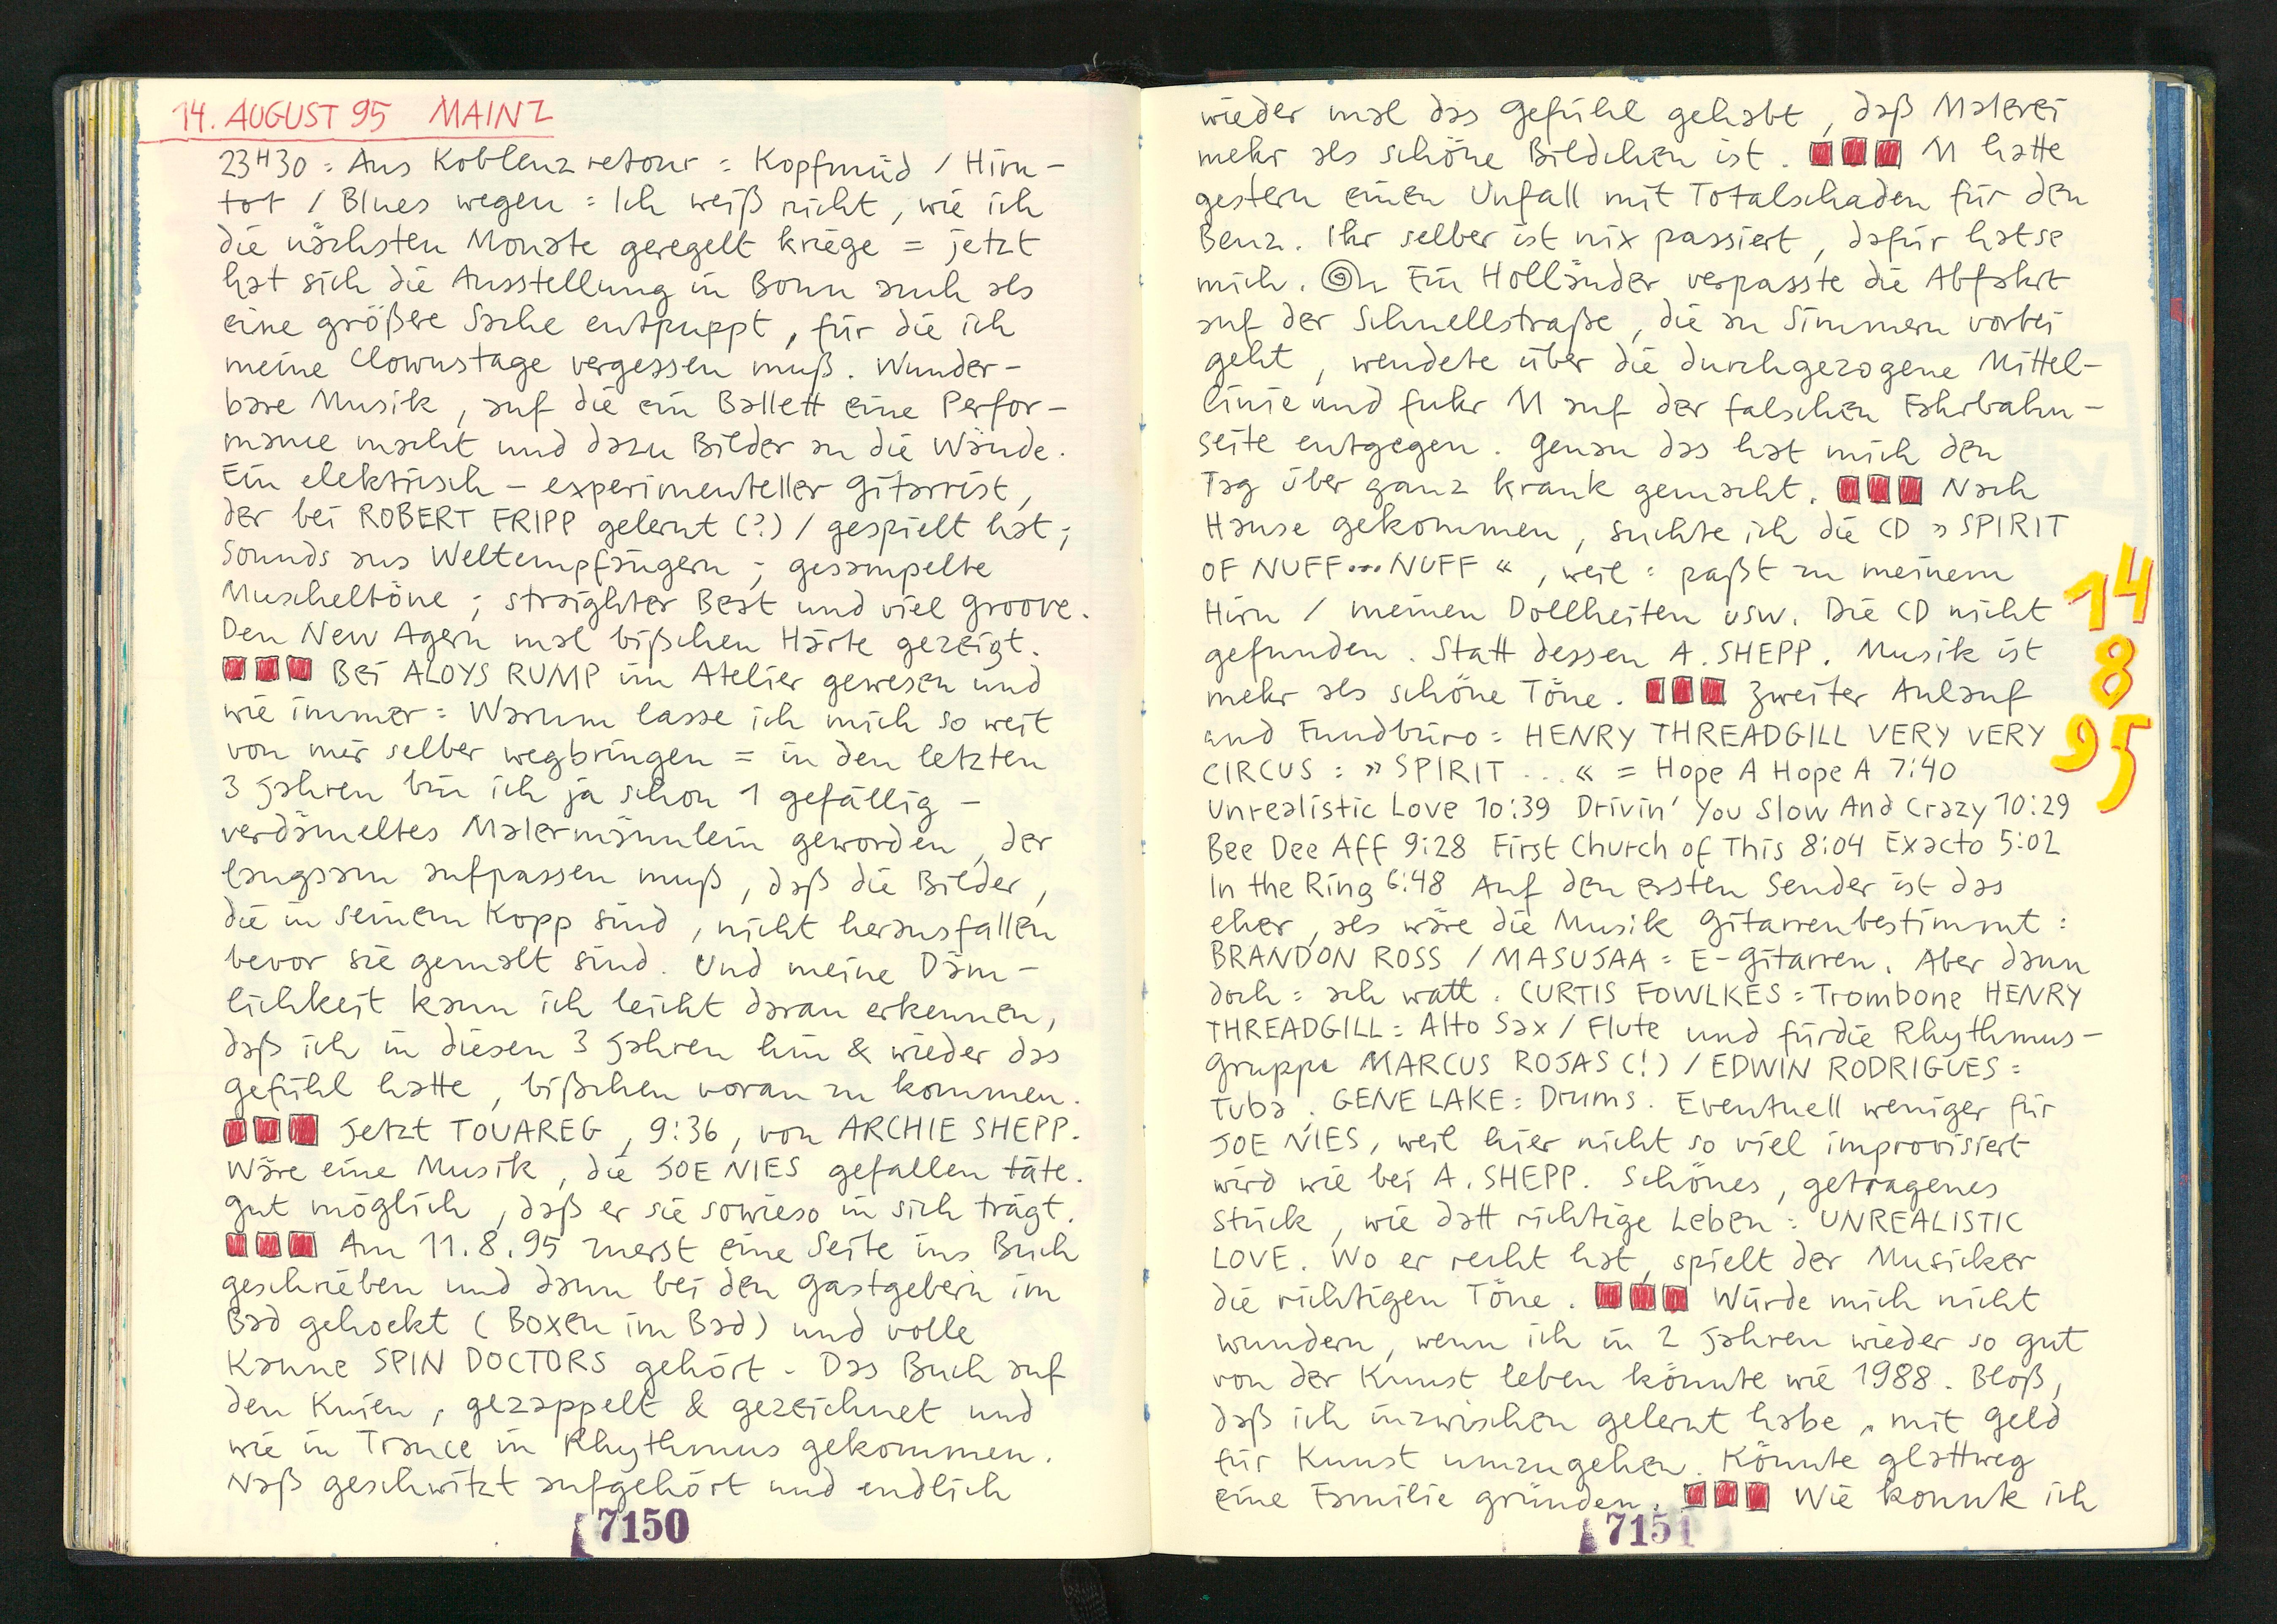 14. AUGUST 95 MAINZ
23H30 : Aus Koblenz retour : Kopfmüd / Hirn-
tot / Blues wegen : Ich weiß nicht, wie ich
die nächsten Monate geregelt kriege = jetzt
hat sich die Ausstellung in Bonn auch als
eine größere Sache entpuppt, für die ich
meine Clownstage vergessen muß. Wunder-
bare Musik, auf die ein Ballett eine Perfor-
mance macht und dazu Bilder an die Wände.
Ein elektrisch – experimenteller Gitarrist,
der bei ROBERT FRIPP gelernt (?) / gespielt hat ;
Sounds aus Weltempfängern ; gesampelte
Muscheltöne ; straighter Beat und viel Groove.
Den New Agern mal bißchen Härte gezeigt.
Bei ALOYS RUMP im Atelier gewesen und
wie immer : Warum lasse ich mich so weit
von mir selber wegbringen = in den letzten
3 Jahren bin ich ja schon 1 gefällig –
verdämeltes Malermännlein geworden, der
langsam aufpassen muß, daß die Bilder,
die in seinem Kopp sind, nicht herausfallen
bevor sie gemalt sind. Und meine Däm-
lichkeit kann ich leicht daran erkennen,
daß ich in diesen 3 Jahren hin & wieder das
Gefühl hatte, bißchen voran zu kommen.
Jetzt TOUAREG, 9:36, von ARCHIE SHEPP.
Wäre eine Musik, die JOE NIES gefallen täte.
Gut möglich, daß er sie sowieso in sich trägt.
Am 11.8.95 zuerst eine Seite ins Buch
geschrieben und dann bei den Gastgebern im
Bad gehockt (Boxen im Bad) und volle
Kanne SPIN DOCTORS gehört. Das Buch auf
den Knien, gezappelt & gezeichnet und
wie in Trance in Rhythmus gekommen.
Naß geschwitzt aufgehört und endlich
7150
wieder mal das Gefühl gehabt, daß Malerei
mehr als schöne Bildchen ist. M hatte
gestern einen Unfall mit Totalschaden für den
Benz. Ihr selber ist nix passiert, dafür hatse
mich. Ein Holländer verpasste die Abfahrt
auf der Schnellstraße, die an Simmern vorbei
geht, wendete über die durchgezogene Mittel-
linie und fuhr M auf der falschen Fahrbahn-
seite entgegen. Genau das hat mich den
Tag über ganz krank gemacht. Nach
Hause gekommen, suchte ich die CD » SPIRIT
OF NUFF...NUFF «, weil : paßt zu meinem
Hirn / meinen Dollheiten usw. Die CD nicht
gefunden. Statt dessen A. SHEPP. Musik ist
mehr als schöne Töne. Zweiter Anlauf
und Fundbüro : HENRY THREADGILL VERY VERY
CIRCUS : » SPIRIT ... « = Hope A Hope A 7:40
Unrealistic Love 10:39 Drivin' You Slow And Crazy 10:29
Bee Dee Aff 9:28 First Church of This 8:04 Exacto 5:02
In the Ring 6:48 Auf den ersten Sender ist das
eher, als wäre die Musik Gitarrenbestimmt :
BRANDON ROSS / MASUJAA = E-Gitarren. Aber dann
doch : ach watt. CURTIS FOWLKES = Trombone HENRY
THREADGILL = Alto Sax / Flute und für die Rhythmus-
gruppe MARCUS ROJAS (!) / EDWIN RODRIGUES =
Tuba. GENE LAKE = Drums. Eventuell weniger für
JOE NIES, weil hier nicht so viel improvisiert
wird wie bei A. SHEPP. Schönes, getragenes
Stück, wie datt richtige Leben : UNREALISTIC
LOVE. Wo er recht hat, spielt der Musicker
die richtigen Töne. Würde mich nicht
wundern, wenn ich in 2 Jahren wieder so gut
von der Kunst leben könnte wie 1988. Bloß,
daß ich inzwischen gelernt habe, mit Geld
für Kunst umzugehen. Könnte glattweg
eine Familie gründen. Wie konnte ich
7151
14
8
95